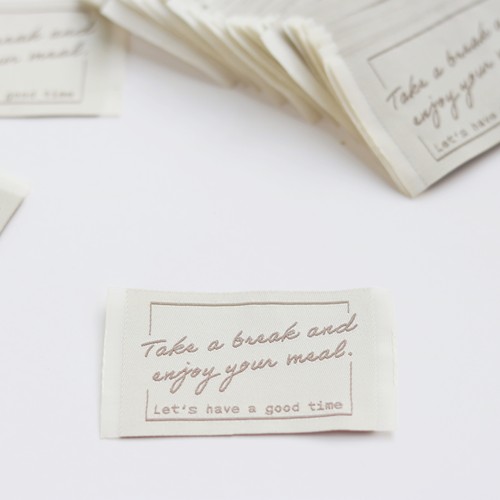 nd
meal.
good time
Take a break
enjoy your
Let's have
Take a break and
enjoy your meal.
Let's have a good time